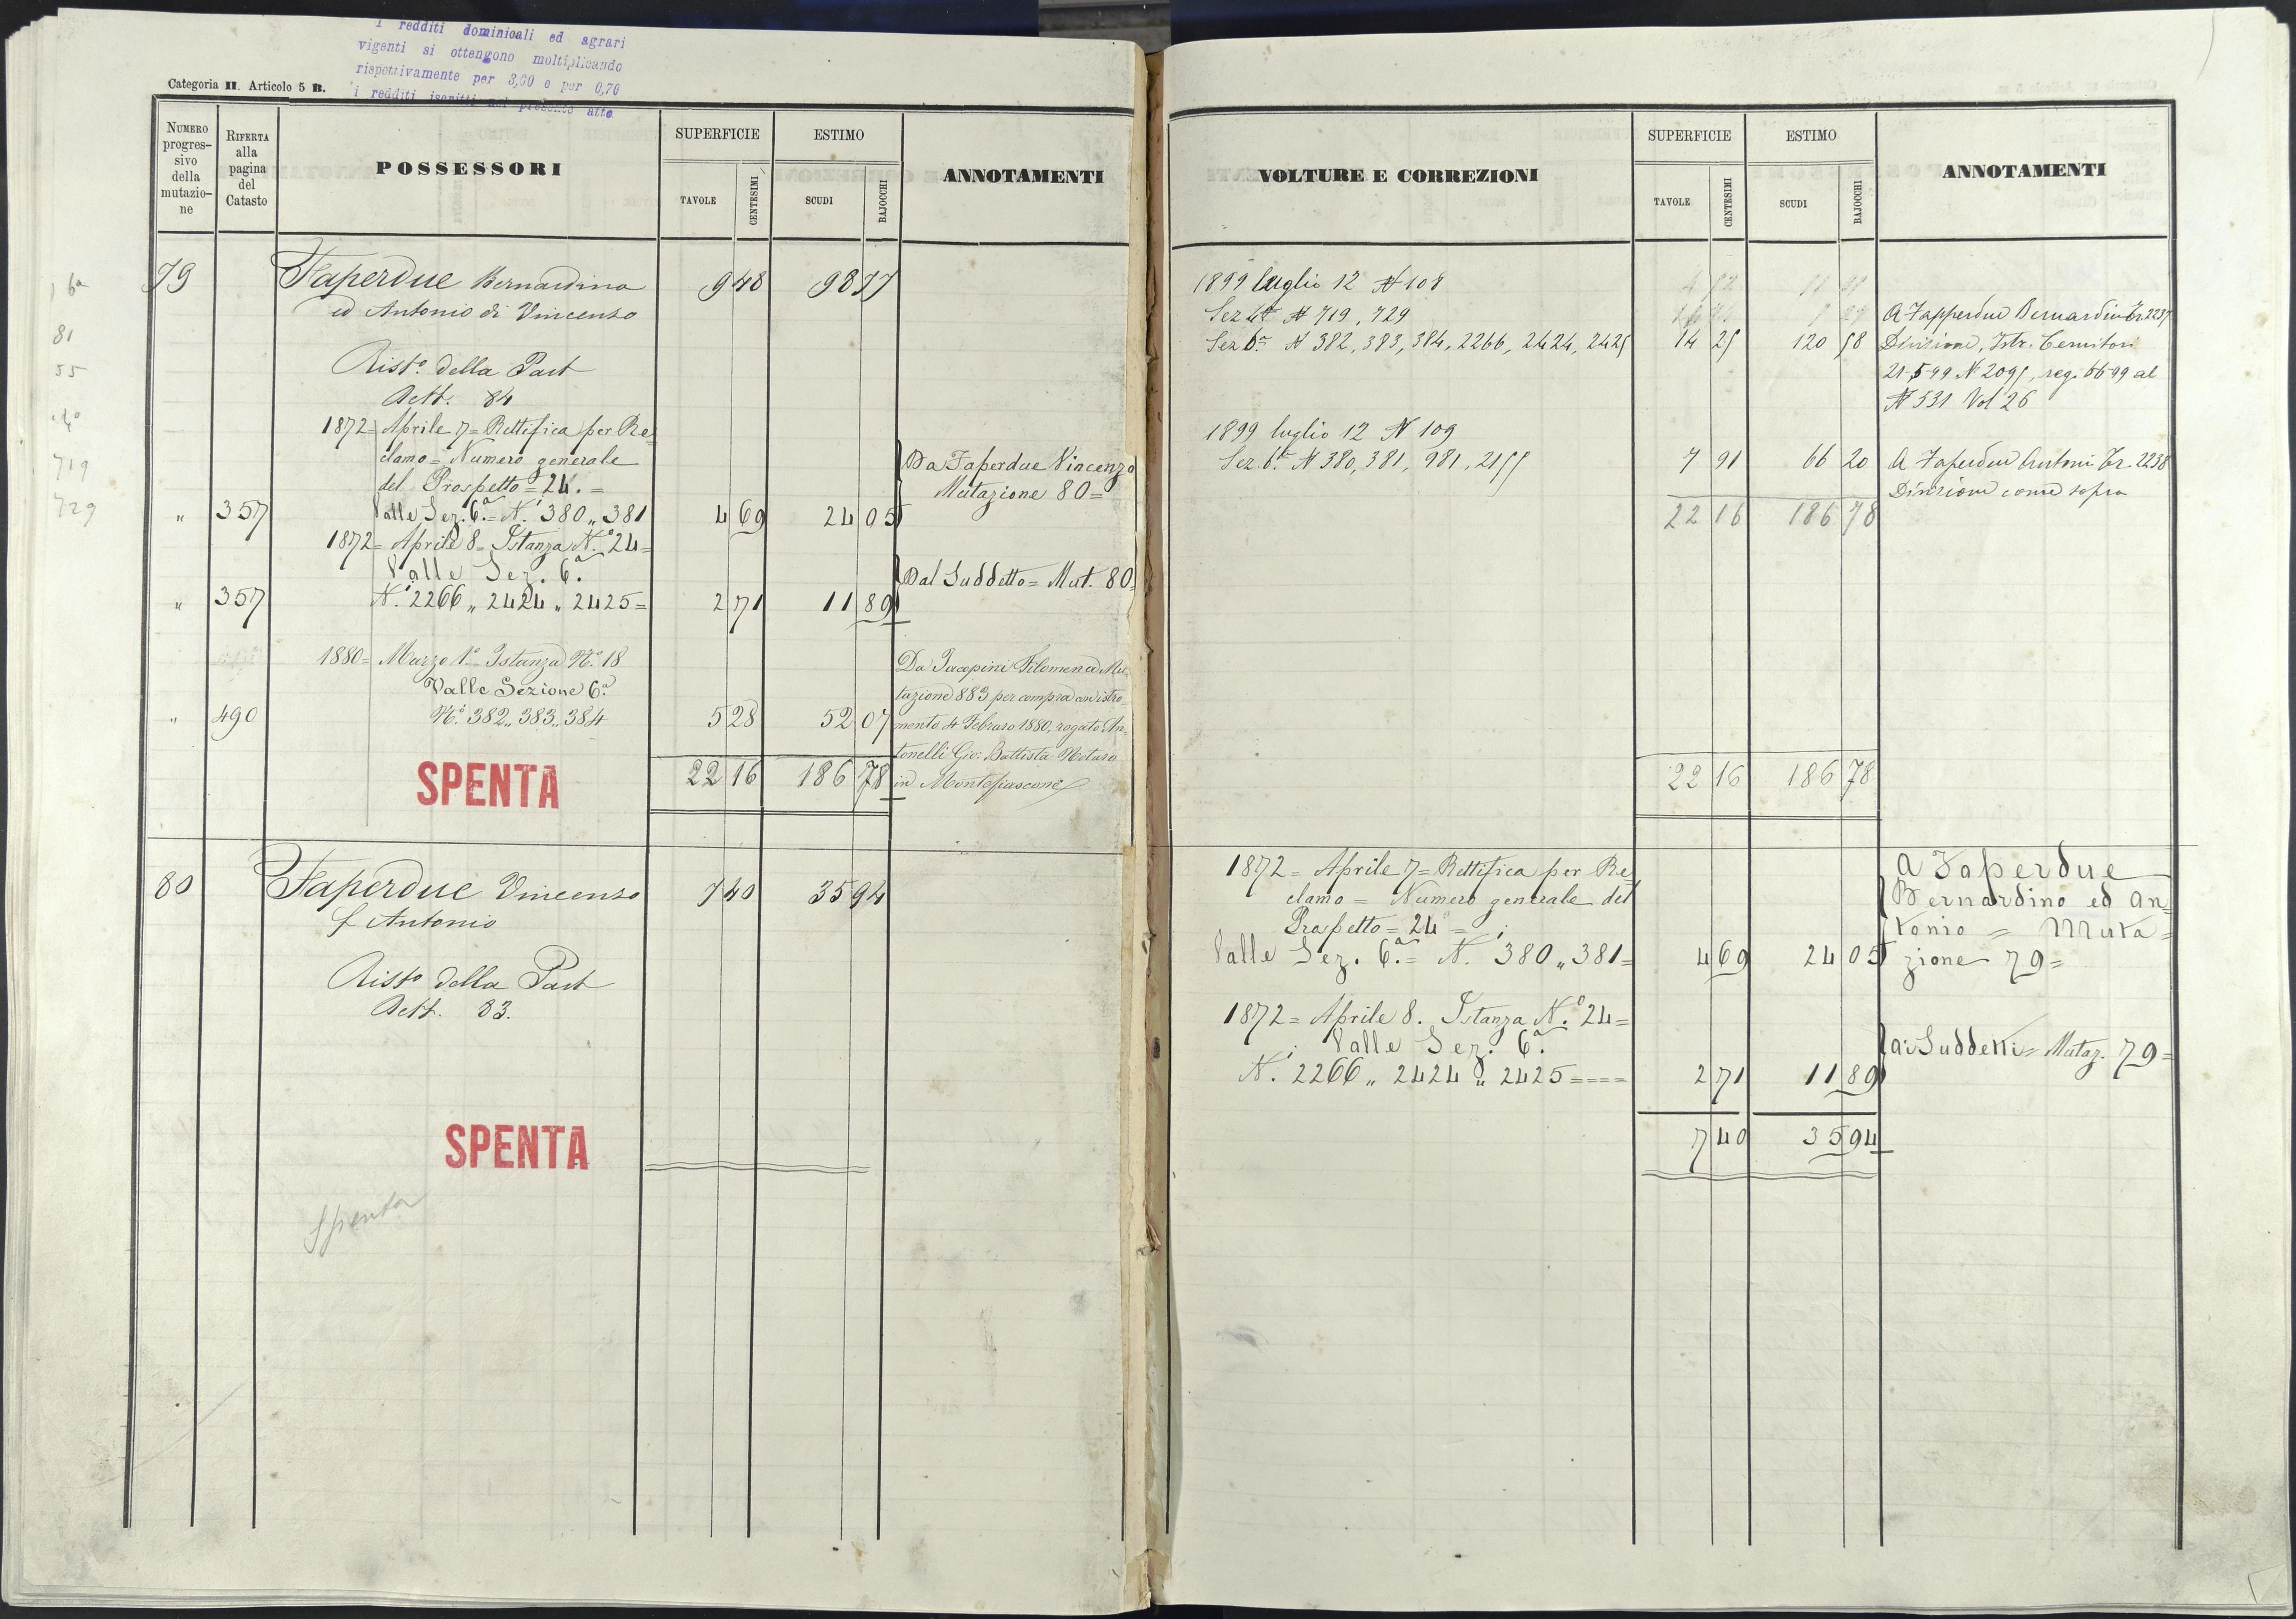 i redditi dominicali ed agrari
vigenti si ottengono moltiplicando
rispettivamente per 3,60 e per 0,70
i redditi iscritti nel presente atto
Categoria II. Articolo 5 B.
NUMERO progres- sivo della mutazio- ne
RIFERTA alla pagina del Catasto
POSSESSORI
SUPERFICIE
TAVOLE CENTESIMI
ESTIMO
SCUDI BAJOCCHI
ANNOTAMENTI
79 Faperdue Bernardino 9 48 98 77
ed Antonio di Vincenzo
Rist.º della Part
Rett. 84
1872= Aprile 7= Rettifica per Re
clamo= Numero generale
del Prospetto= 24.=
" 357 Valle Sez. 6.ª= N.i 380 „ 381 4 69 24 05
Da Faperdue Vincenzo
Mutazione 80=
1872= Aprile 8= Istanza N.º 24=
Valle Sez. 6.ª
" 357 N.i 2266 „ 2424 „ 2425= 2 71 11 89
Dal Suddetto= Mut. 80=
1880= Marzo 1.º Istanza N.º 18
Valle Sezione 6.ª
" 490 N.i 382 „ 383 „ 384 5 28 52 07
Da Jacopini Filomena Mu-
tazione 883 per compra con istro-
mento 4 Febraro 1880, rogato An-
tonelli Gio: Battista Notaro
in Montefiascone
SPENTA
22 16 186 78
80 Faperdue Vincenzo 7 40 35 94
f Antonio
Rist.º della Part
Rett. 83.
SPENTA
Spenta
1 6a
81
55
719
729
VOLTURE E CORREZIONI
SUPERFICIE
TAVOLE CENTESIMI
ESTIMO
SCUDI BAJOCCHI
ANNOTAMENTI
1899 luglio 12 N 108
Sez 4ª N 719, 729
Sez 6ª N 382, 383, 384, 2266, 2424, 2425 14 25 120 58
A Fapperdue Bernardino Tr. 2237
Divisione, Istr. Cernitori
21-5-99 N 2095, reg. 6 6 99 al
N 531 Vol 26
1899 luglio 12 N 109
Sez. 6ª N 380, 381, 981, 2155 7 91 66 20
A Faperdue Antonio Tr. 2238
Divisione come sopra
22 16 186 78
22 16 186 78
1872= Aprile 7= Rettifica per Re
clamo= Numero generale del
Prospetto= 24=
Valle Sez. 6.ª= N.i 380 „ 381= 4 69 24 05
A Faperdue
Bernardino ed An=
tonio= Muta=
zione 79=
1872= Aprile 8. Istanza N.º 24=
Valle Sez. 6.ª
N.i 2266 „ 2424 „ 2425==== 2 71 11 89
Ai Suddetti= Mutaz. 79=
7 40 35 94